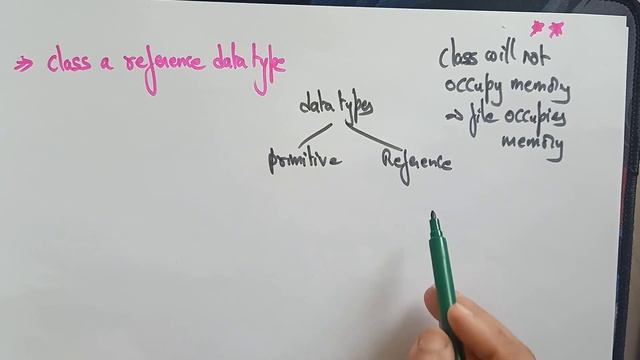 ⇒ class a reference datatype
data types
primitive Reference
** 
class will not
occupy memory
⇒ file occupies
memory